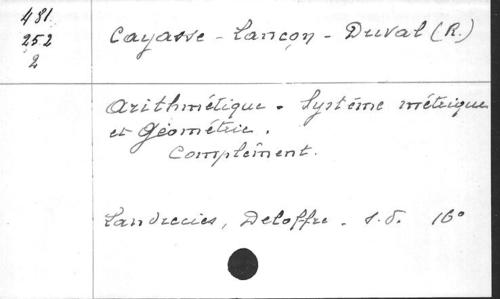 481
252
2
Cayasse - Lançon - Duval (R.)
Arithmétique - Système métrique
et Géométrie.
Complément.
Landrecies, Deloffre - s.d. 16°